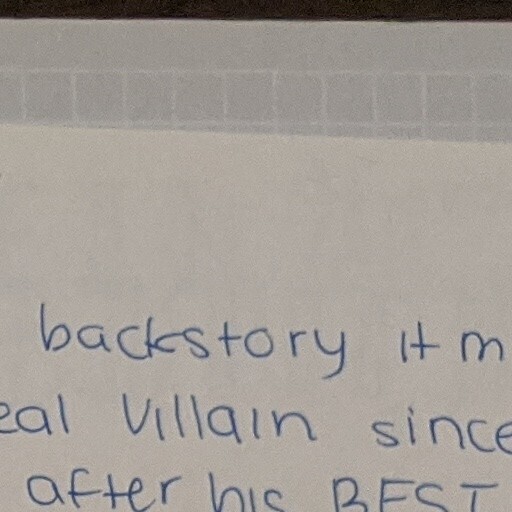 backstory it m
eal villain since
after his BEST